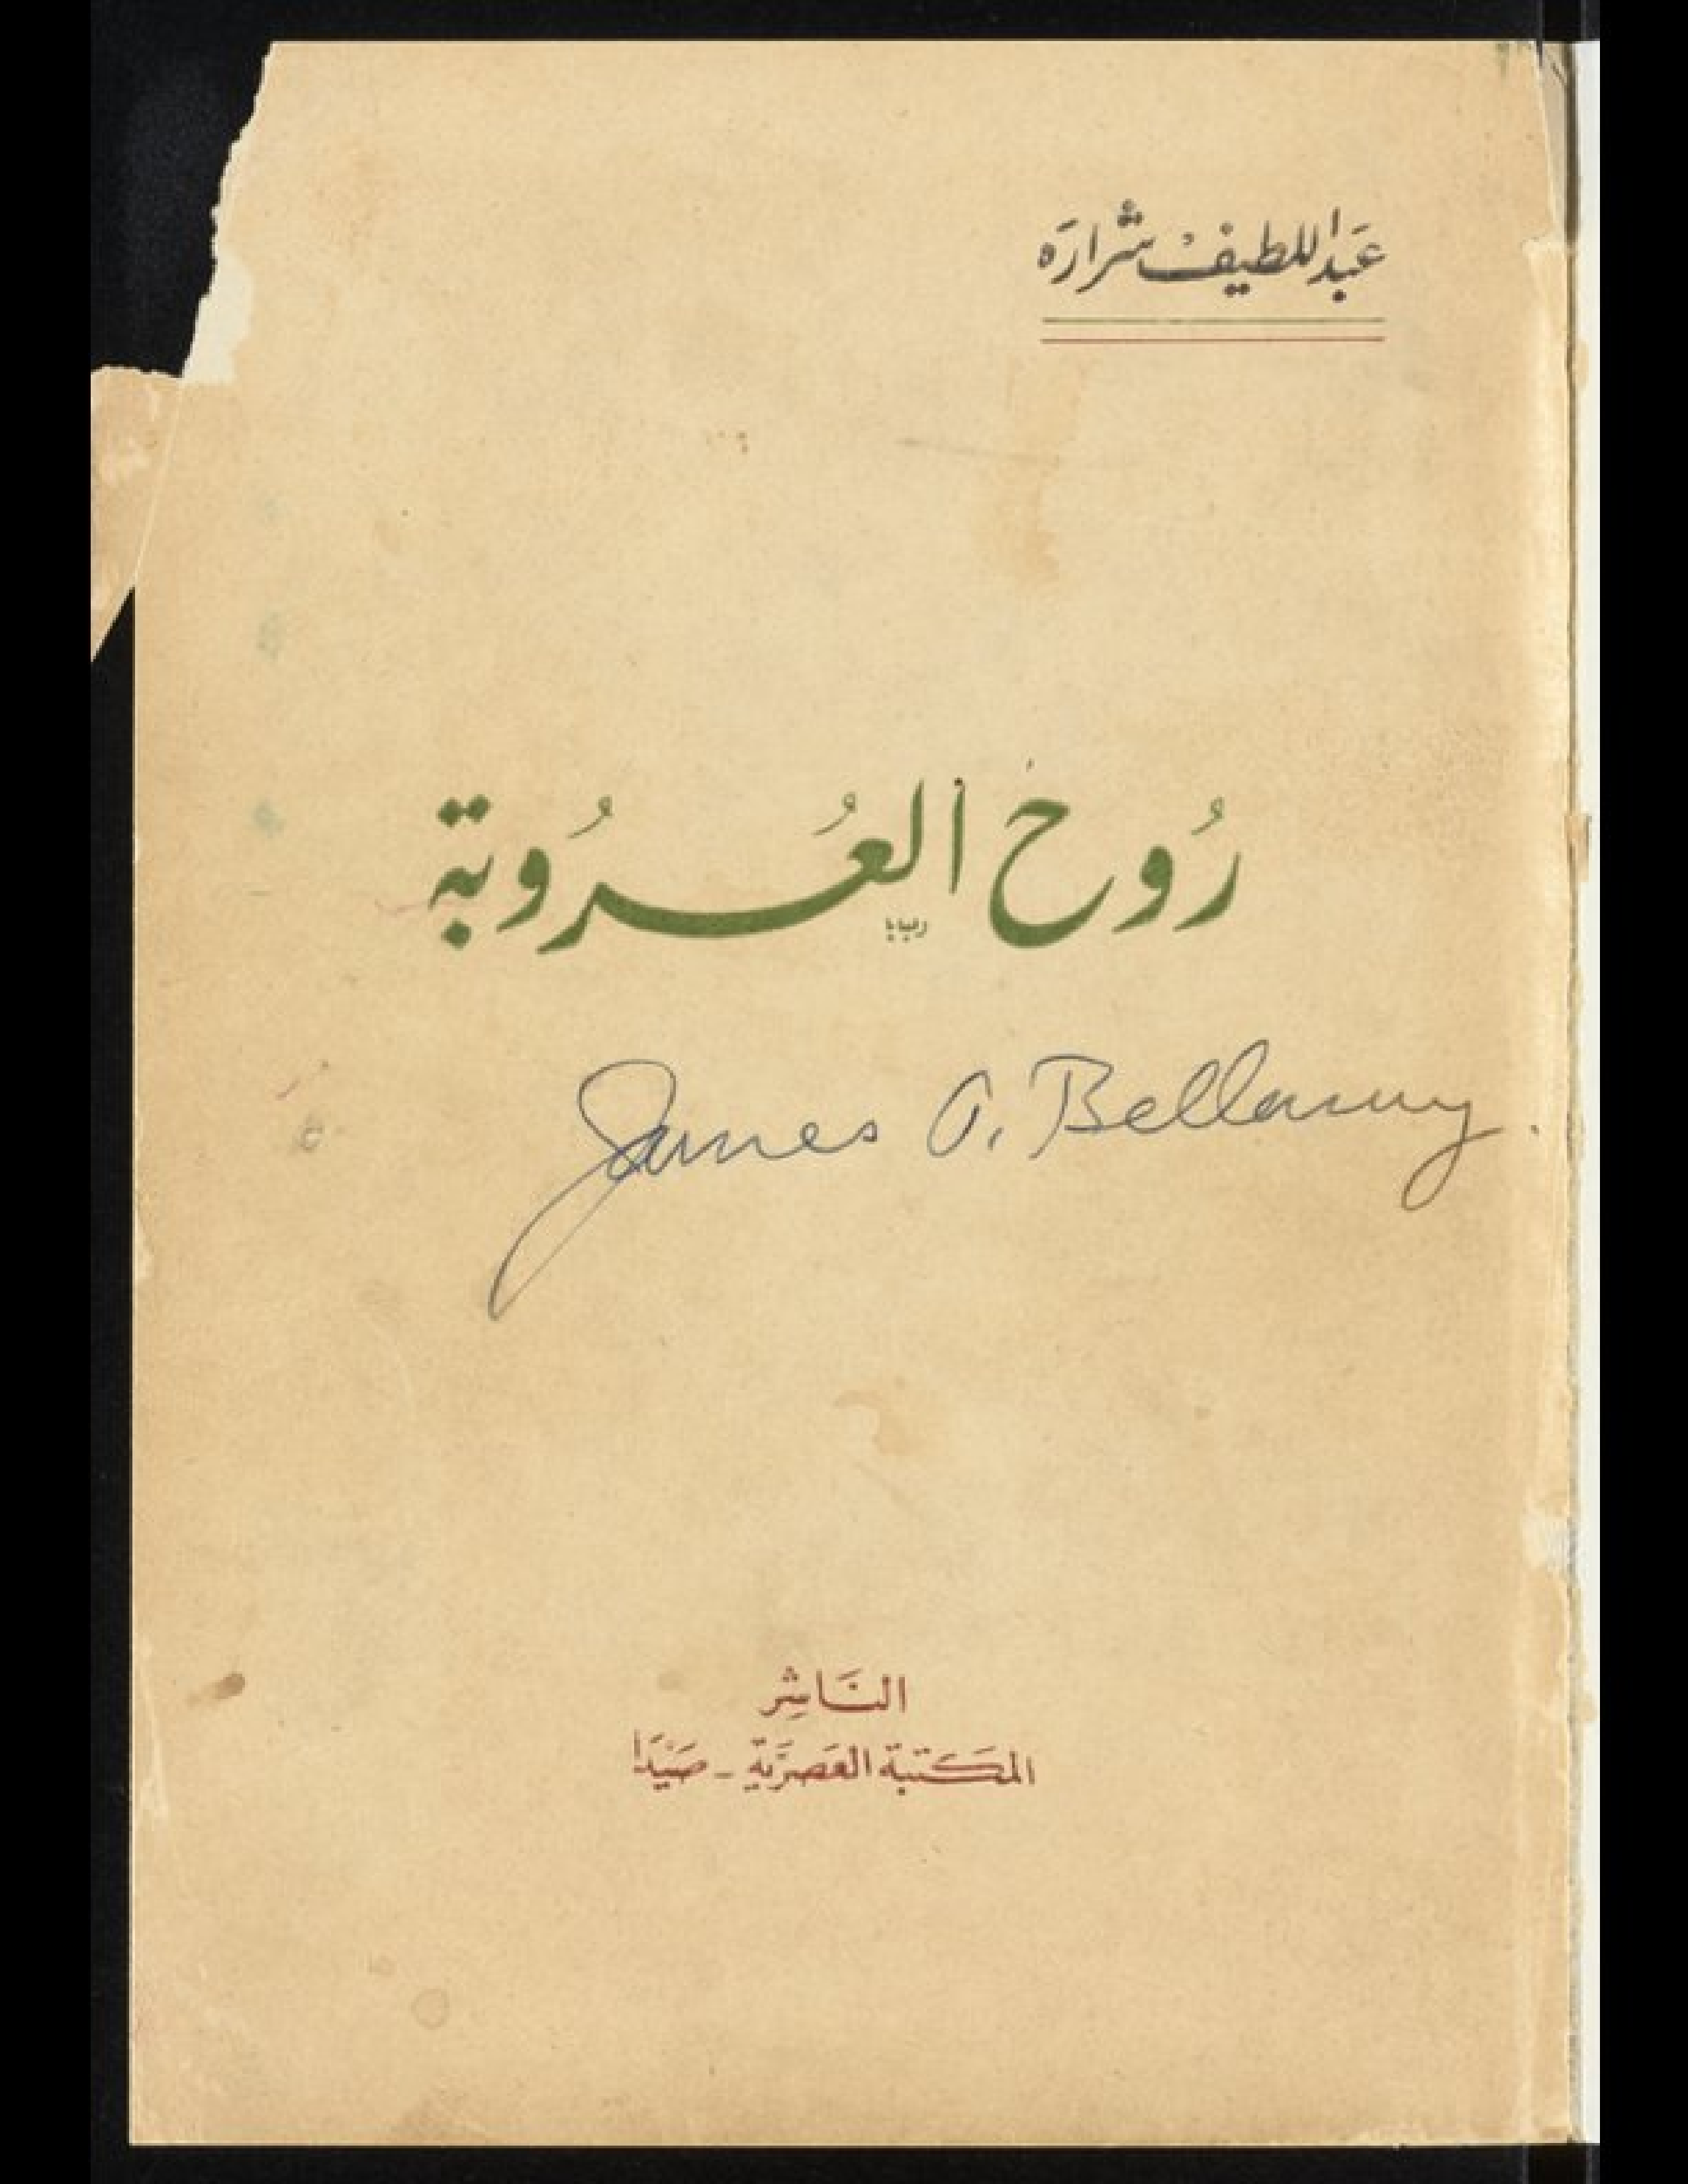 عَبد اللطيف شرارَه
رُوحُ العُرُوبة
James A. Bellamy.
النَاشِر
المكتبة العَصريَّة - صَيْدَا